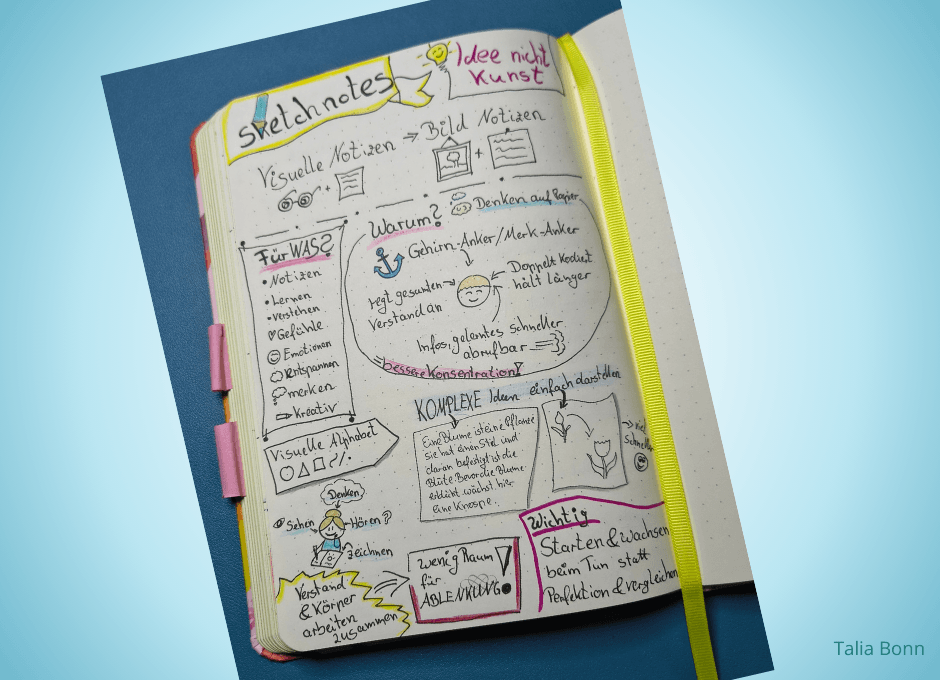 sketchnotes
Idee nicht
Kunst
Visuelle Notizen => Bild Notizen
+
+
Für WAS?
• Notizen
• Lernen
• verstehen
Gefühle
Emotionen
Entspannen
merken
Kreativ
Warum?
Denken auf Papier
Gehirn-Anker/Merk-Anker
regt gesamten
Verstand an
Doppelt Kodiert
hält länger
Infos, gelerntes schneller
abrufbar
=bessere Konzentration!
Visuelle Alphabet
KOMPLEXE Ideen einfach darstellen
Eine Blume ist eine Pflanze
sie hat einen Stiel und
daran befestigt ist die
Blüte. Bevor die Blume
erblüht wächst hier
eine Knospe.
Schneller
Denken
Sehen
Hören?
Zeichnen
Verstand
& Körper
arbeiten
zusammen
wenig Raum
für
ABLENKUNG!
Wichtig
Starten & wachsen
beim Tun statt
Perfektion & vergleichen
Talia Bonn